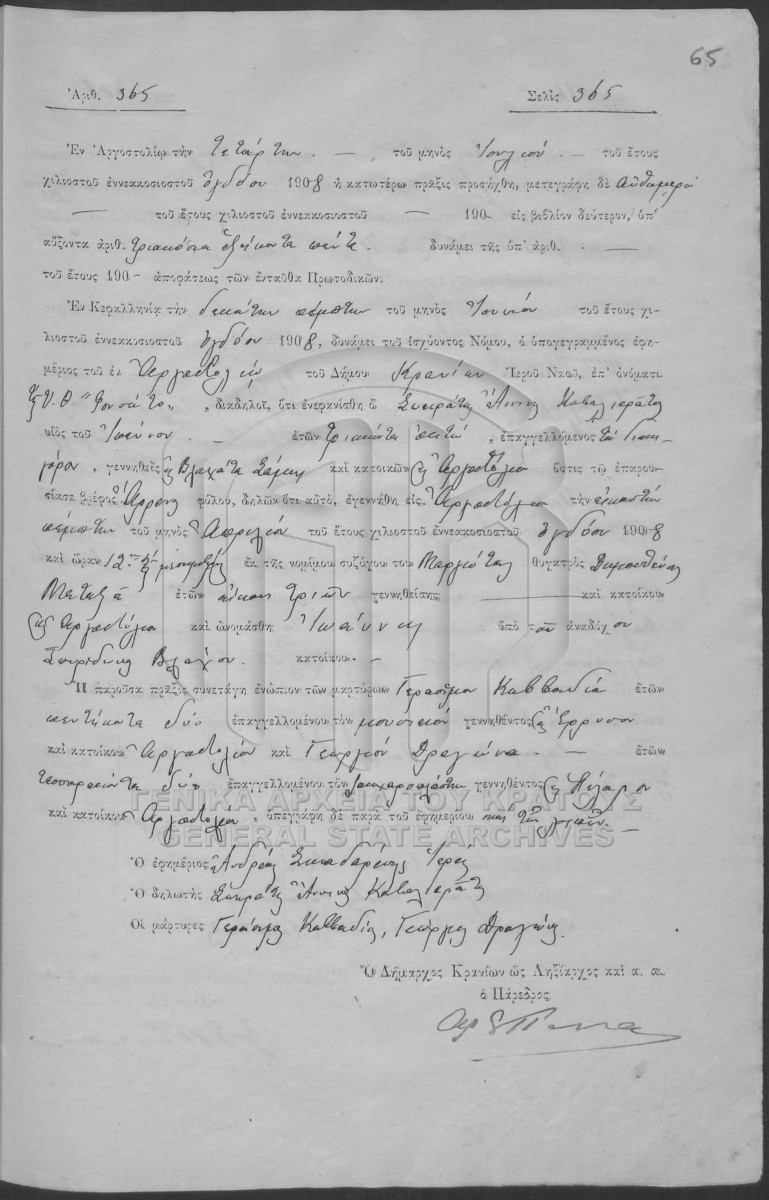 65
Ἀριθ. 365 Σελὶς 365
Ἐν Ἀργοστολίῳ τὴν τετάρτην — τοῦ μηνὸς Ἰουλίου — τοῦ ἔτους
χιλιοστοῦ ἐννεακοσιοστοῦ ὀγδόου 1908 ἡ κατωτέρω πρᾶξις προσήχθη, μετεγράφη δὲ αὐθημερὸν
— τοῦ ἔτους χιλιοστοῦ ἐννεακοσιοστοῦ — 190 εἰς βιβλίον δεύτερον, ὑπ'
αὔξοντα ἀριθ. τριακόσια ἑξήκοντα πέντε. δυνάμει τῆς ὑπ' ἀριθ. —
τοῦ ἔτους 190— ἀποφάσεως τῶν ἐνταῦθα Πρωτοδικῶν.
Ἐν Κεφαλληνίᾳ τὴν δεκάτην πέμπτην τοῦ μηνὸς Ἰουνίου τοῦ ἔτους χι-
λιοστοῦ ἐννεακοσιοστοῦ ὀγδόου 1908, δυνάμει τοῦ ἰσχύοντος Νόμου, ὁ ὑπογεγραμμένος ἐφη-
μέριος τοῦ ἐν Ἀργοστολίῳ τοῦ Δήμου Κρανίων Ἱεροῦ Ναοῦ, ἐπ' ὀνόματι
, διαδηλοῖ, ὅτι ἐνεφανίσθη ὁ Σωκράτης Ἄννινος Καβαλιεράτος
υἱὸς τοῦ Ἰωάννου — ἐτῶν τριάκοντα ὀκτώ, ἐπαγγελλόμενος τὸν δικη-
γόρον, γεννηθεὶς εἰς Βλαχάτα Σάμης καὶ κατοικῶν εἰς Ἀργοστόλιον ὅστις τῷ ἐπαρου-
σίασε βρέφος ἄρρεν φύλου, δηλῶν ὅτι αὐτὸ, ἐγεννήθη εἰς Ἀργοστόλιον τὴν εἰκοστὴν
πέμπτην τοῦ μηνὸς Ἀπριλίου τοῦ ἔτους χιλιοστοῦ ἐννεακοσιοστοῦ ὀγδόου 1908
καὶ ὥραν 12ην τῆς μεσημβρίας ἐκ τῆς νομίμου συζύγου του Μαργιέτας θυγατρὸς Δημοσθένους
Μεταξᾶ ἐτῶν εἴκοσι τριῶν γεννηθείσης — καὶ κατοίκου
εἰς Ἀργοστόλιον καὶ ὠνομάσθη Ἰωάννης ὑπὸ τοῦ ἀναδόχου
Σπυρίδωνος Βλάχου. κατοίκου —
Ἡ παροῦσα πρᾶξις συνετάγη ἐνώπιον τῶν μαρτύρων Γερασίμου Καββαδία ἐτῶν
πεντήκοντα δύο ἐπαγγελλομένου τὸν μουσικὸν γεννηθέντος εἰς
καὶ κατοίκου Ἀργοστολίου καὶ Γεωργίου Δραγώνα — ἐτῶν
τεσσαράκοντα δύο ἐπαγγελλομένου τὸν ζαχαροπλάστην γεννηθέντος εἰς Πύλαρον
καὶ κατοίκου Ἀργοστολίου, ὑπεγράφη δὲ παρὰ τοῦ ἐφημερίου καὶ τῶν λοιπῶν —
ΓΕΝΙΚΑ ΑΡΧΕΙΑ ΤΟΥ ΚΡΑΤΟΥΣ
GENERAL STATE ARCHIVES
Ὁ ἐφημέριος Ἀνδρέας Ἱερεύς
Ὁ δηλωτὴς Σωκράτης Ἄννινος Καβαλιεράτος
Οἱ μάρτυρες Γεράσιμος Καββαδίας, Γεώργιος Δραγώνας
Ὁ Δήμαρχος Κρανίων ὡς Ληξίαρχος καὶ α. α.
ὁ Πάρεδρος